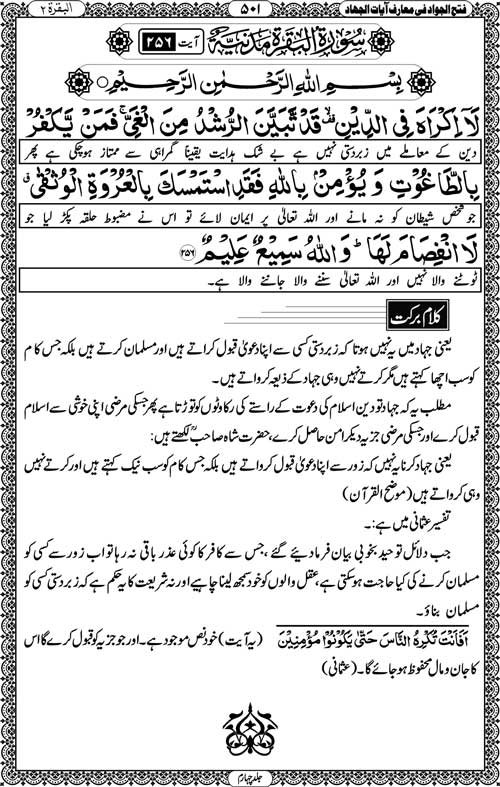 البقرة ۲
۵۰۱
فتح الجواد فی معارف آیات الجہاد
سُوْرَةُ الْبَقَرَةِ مَدَنِيَّةٌ
آیت ۲۵۶
بِسْمِ اللهِ الرَّحْمٰنِ الرَّحِيْمِ
لَآ اِكْرَاهَ فِي الدِّيْنِ ۙ قَدْ تَّبَيَّنَ الرُّشْدُ مِنَ الْغَيِّ ۚ فَمَنْ يَّكْفُرْ
دین کے معاملے میں زبردستی نہیں ہے بے شک ہدایت یقیناً گمراہی سے ممتاز ہوچکی ہے پھر
بِالطَّاغُوْتِ وَ يُؤْمِنْۢ بِاللهِ فَقَدِ اسْتَمْسَكَ بِالْعُرْوَةِ الْوُثْقٰى ۗ
جو شخص شیطان کو نہ مانے اور اللہ تعالیٰ پر ایمان لائے تو اس نے مضبوط حلقہ پکڑ لیا جو
لَا انْفِصَامَ لَهَا ؕ وَ اللهُ سَمِيْعٌ عَلِيْمٌ ﴿۲۵۶﴾
ٹوٹنے والا نہیں اور اللہ تعالیٰ سننے والا جاننے والا ہے۔
کلام برکت
یعنی جہاد میں یہ نہیں ہوتا کہ زبردستی کسی سے اپنا دعویٰ قبول کراتے ہیں اور مسلمان کرتے ہیں بلکہ جس کام
کو سب اچھا کہتے ہیں مگر کرتے نہیں وہی جہاد کے ذریعہ کرواتے ہیں۔
مطلب یہ کہ جہاد تو دین اسلام کی دعوت کے راستے کی رکاوٹوں کو توڑتا ہے پھر جسکی مرضی اپنی خوشی سے اسلام
قبول کرے اور جسکی مرضی جزیہ دیکر امن حاصل کرے، حضرت شاہ صاحبؒ لکھتے ہیں:
یعنی جہاد کرنا یہ نہیں کہ زور سے اپنا دعویٰ قبول کرواتے ہیں بلکہ جس کام کو سب نیک کہتے ہیں اور کرتے نہیں
وہی کرواتے ہیں (موضح القرآن)
تفسیر عثمانی میں ہے:۔
جب دلائل توحید بخوبی بیان فرما دیئے گئے، جس سے کافر کا کوئی عذر باقی نہ رہا تو اب زور سے کسی کو
مسلمان کرنے کی کیا حاجت ہوسکتی ہے، عقل والوں کو خود سمجھ لینا چاہیے اور نہ شریعت کا یہ حکم ہے کہ زبردستی کسی کو
مسلمان بناؤ۔
اَفَاَنْتَ تُكْرِهُ النَّاسَ حَتّٰى يَكُوْنُوْا مُؤْمِنِيْنَ (یہ آیت) خود نص موجود ہے۔ اور جو جزیہ کو قبول کرے گا اس
کا جان و مال محفوظ ہو جائے گا۔ (عثمانی)
جلد چہارم